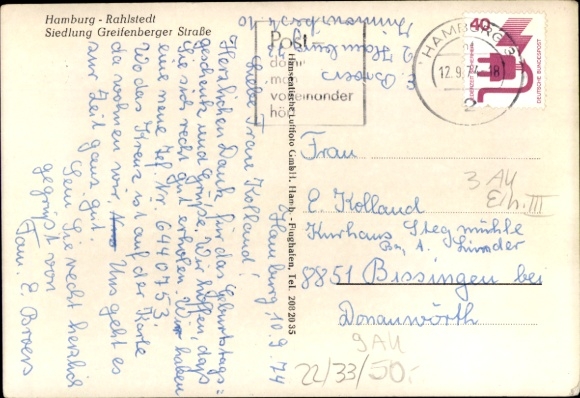 Hamburg - Rahlstedt
Siedlung Greifenberger Straße
E. Broers
2 Hamburg
Post
damit
man
voneinander
hört
HAMBURG
12.9.74-18
2
40
DEUTSCHE BUNDESPOST
Hanseatische Luftfoto GmbH. Hamb. - Flughafen, Tel. 2082035
Hamburg, 10.9.74
Liebe Frau Kolland!
Herzlichen Dank für das Geburtstags=
geschenk und Grüße. Wir hoffen, dass
Sie sich recht gut erholen. Wir haben
eine neue Tel. Nr. 6440753.
Wo das Kreuz ist auf der Karte
da wohnen wir. Uns geht es
zur Zeit ganz gut.
Sein Sie recht herzlich
gegrüßt von
Fam. E. Broers
Frau
E. Kolland
Kurhaus Stegmühle
8851 Bissingen bei
Donauwörth
3 AU
III
9AU
22/33/50.-